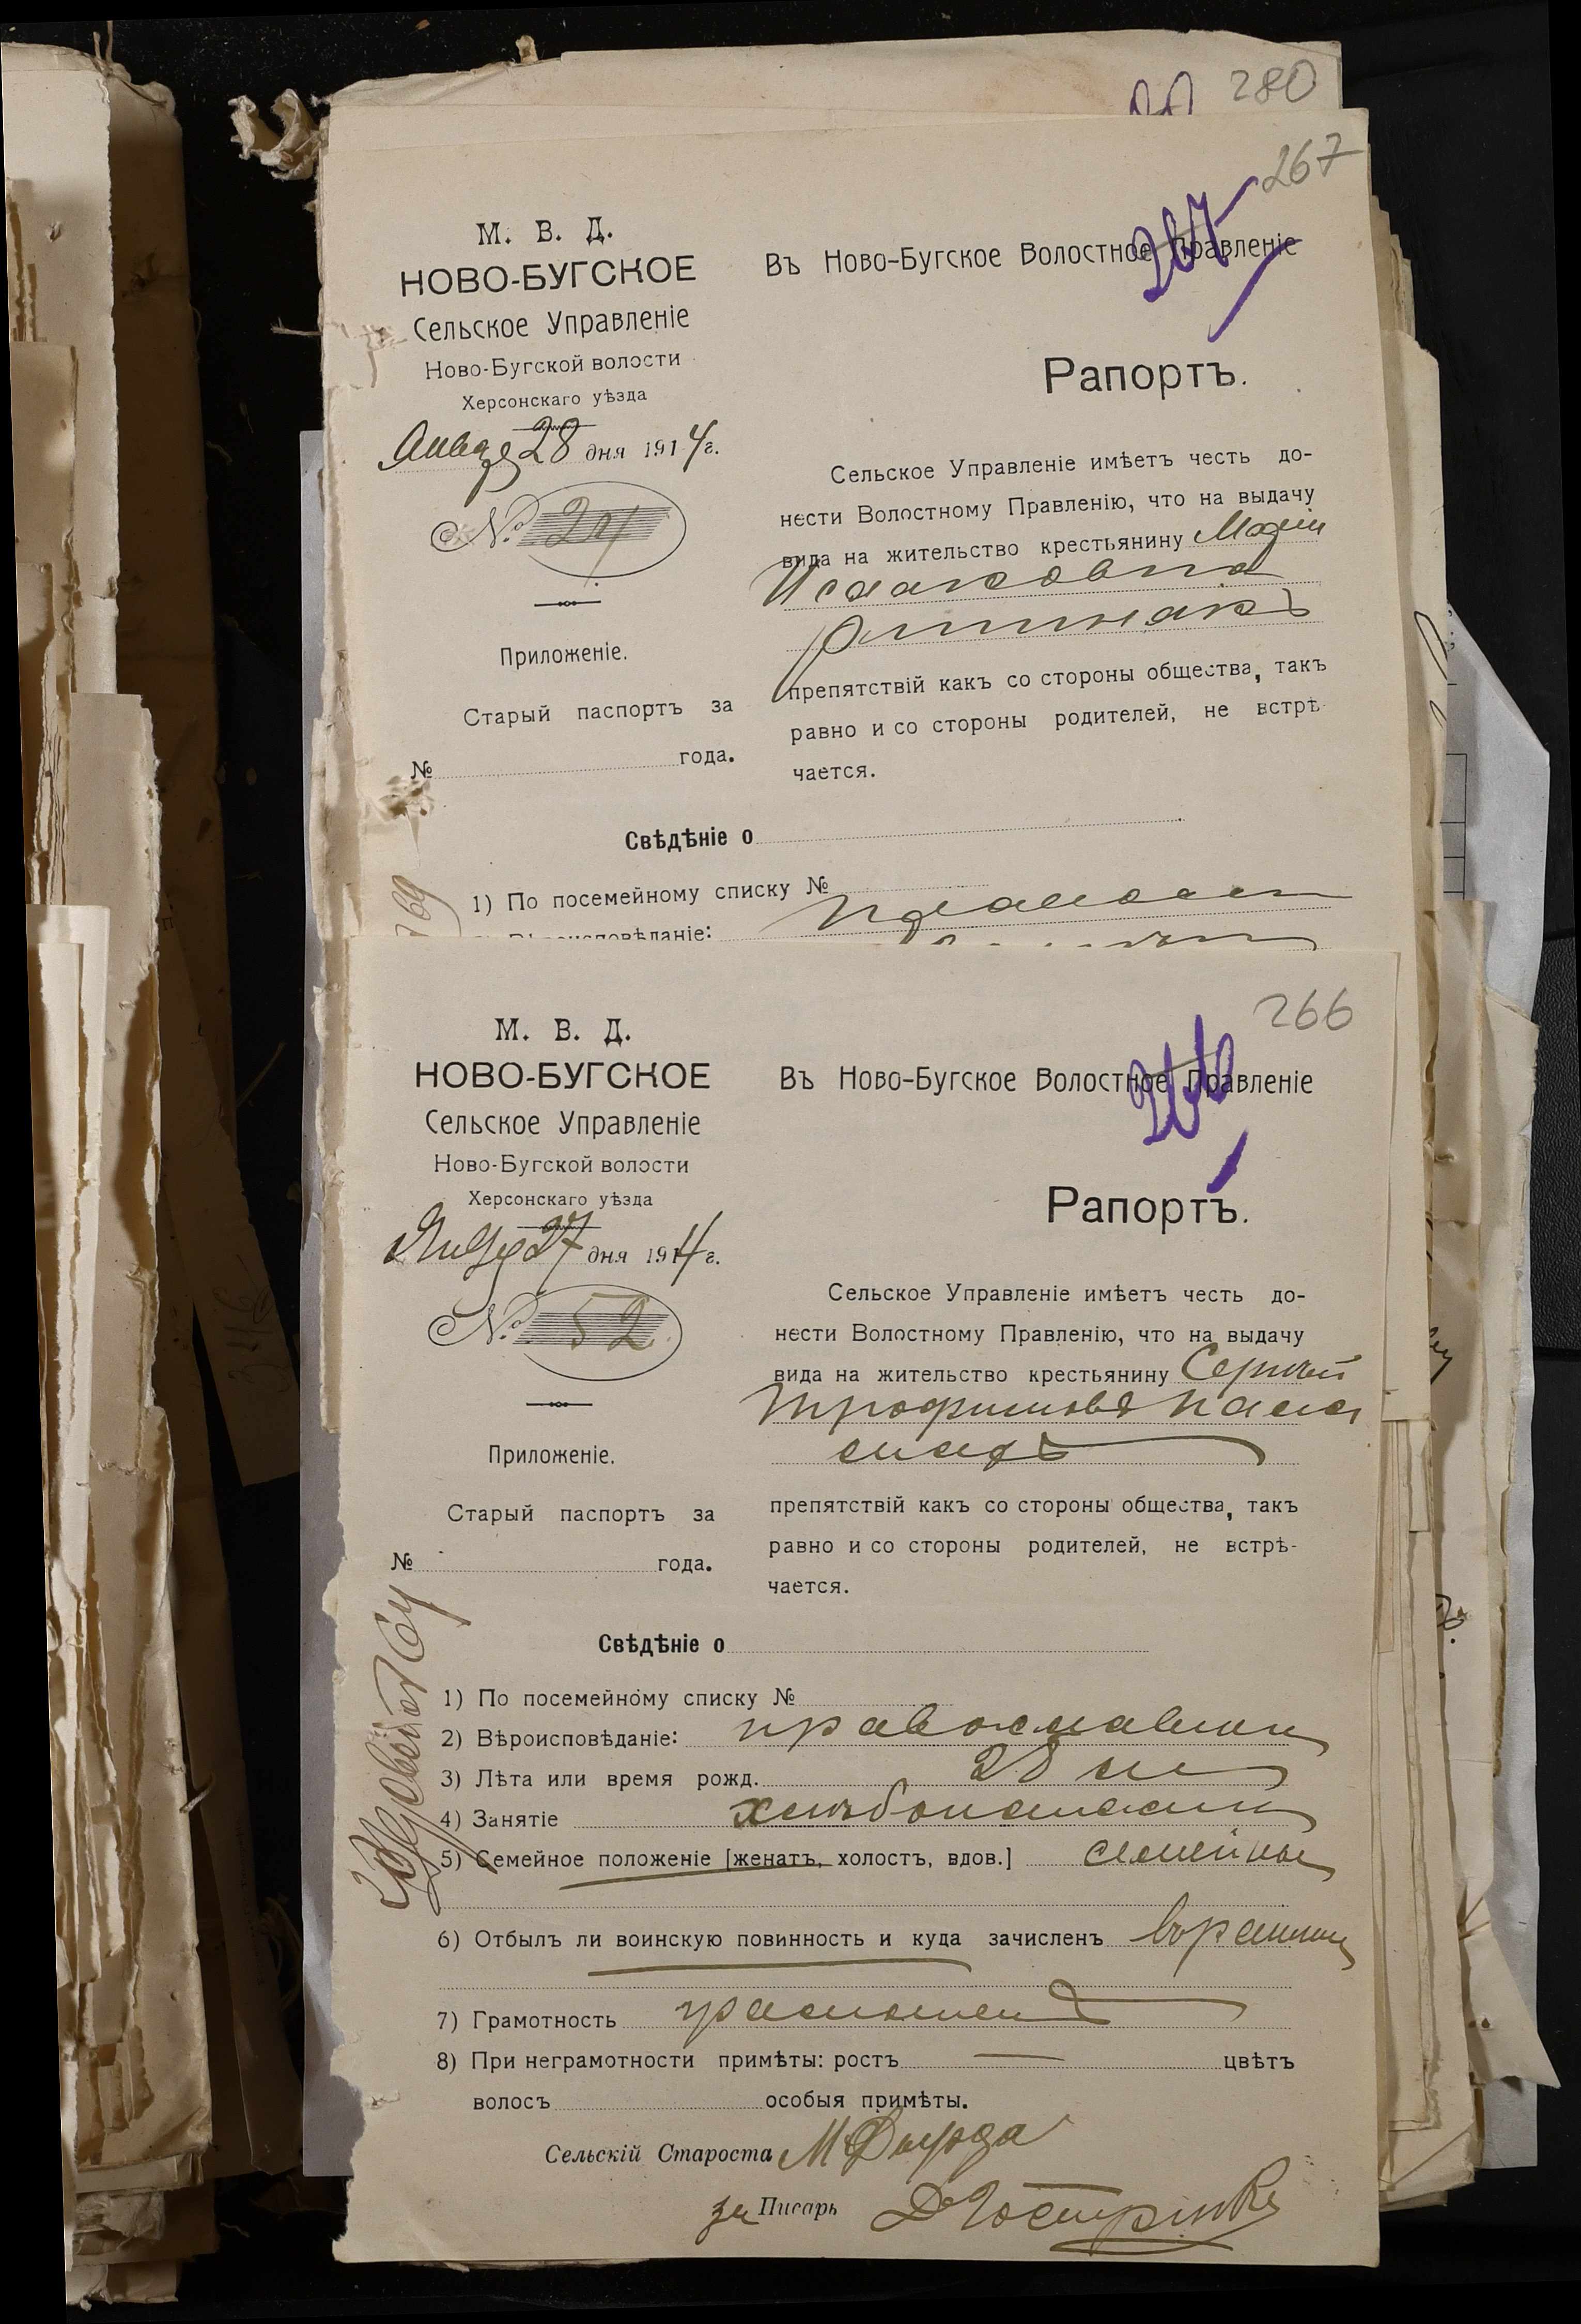 280
267
267
М. В. Д.
НОВО-БУГСКОЕ
Сельское Управленіе
Ново-Бугской волости
Херсонскаго уѣзда
Январ 28 дня 1914 г.
№
Приложеніе.
Старый паспортъ за
№ года.
Въ Ново-Бугское Волостное Правленіе
Рапортъ.
Сельское Управленіе имѣетъ честь до-
нести Волостному Правленію, что на выдачу
вида на жительство крестьянину Маріи
Исааковна
препятствій какъ со стороны общества, такъ
равно и со стороны родителей, не встрѣ-
чается.
Свѣдѣніе о
1) По посемейному списку №
Вѣроисповѣданіе:
169
266
М. В. Д.
НОВО-БУГСКОЕ
Сельское Управленіе
Ново-Бугской волости
Херсонскаго уѣзда
Январ 27 дня 1914 г.
№ 52
Приложеніе.
Старый паспортъ за
№ года.
Въ Ново-Бугское Волостное Правленіе
266
Рапортъ.
Сельское Управленіе имѣетъ честь до-
нести Волостному Правленію, что на выдачу
вида на жительство крестьянину Сергѣй
Трофимовъ Пала
препятствій какъ со стороны общества, такъ
равно и со стороны родителей, не встрѣ-
чается.
Свѣдѣніе о
1) По посемейному списку №
2) Вѣроисповѣданіе: православный
3) Лѣта или время рожд. 28 л
4) Занятіе хлѣбопашест
5) Семейное положеніе [женатъ, холостъ, вдов.] семейный
6) Отбылъ ли воинскую повинность и куда зачисленъ
7) Грамотность грамотенъ
8) При неграмотности примѣты: ростъ — цвѣтъ
волосъ особыя примѣты.
Сельскій Староста М
за Писарь